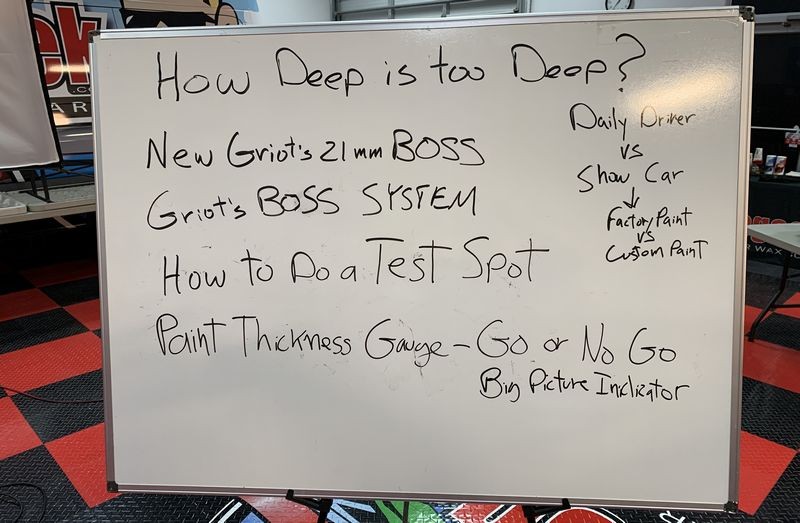 How Deep is too Deep?
New Griot's 21mm BOSS
Griot's BOSS SYSTEM
How to Do a Test Spot
Paint Thickness Gauge - Go or No Go
Big Picture Indicator
Daily Driver
vs
Show Car
↓
Factory Paint
vs
Custom Paint